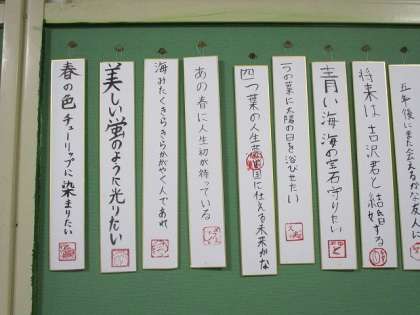 五年後にまた会えるかな友人に
将来は吉沢君と結婚する
青い海海の宝石守りたい
一つの葉に太陽の日を浴びせたい
四つ葉の人生国に仕える未来かな
あの春に人生初が待っている
海みたくきらきらかがやく人であれ
美しい蛍のように光りたい
春の色チューリップに染まりたい